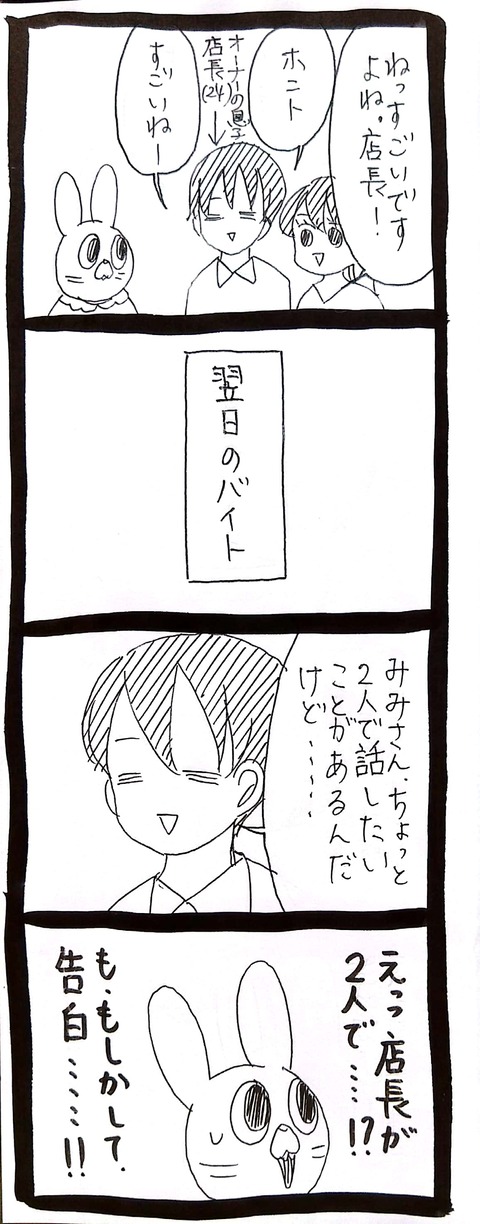 ねっすごいです
よね。店長！
ホント
オーナーの息子
店長(24)
すごいねー
翌日のバイト
みみさん、ちょっと
2人で話したい
ことがあるんだ
けど……
えっ店長が
2人で……!?
も、もしかして、
告白……!!